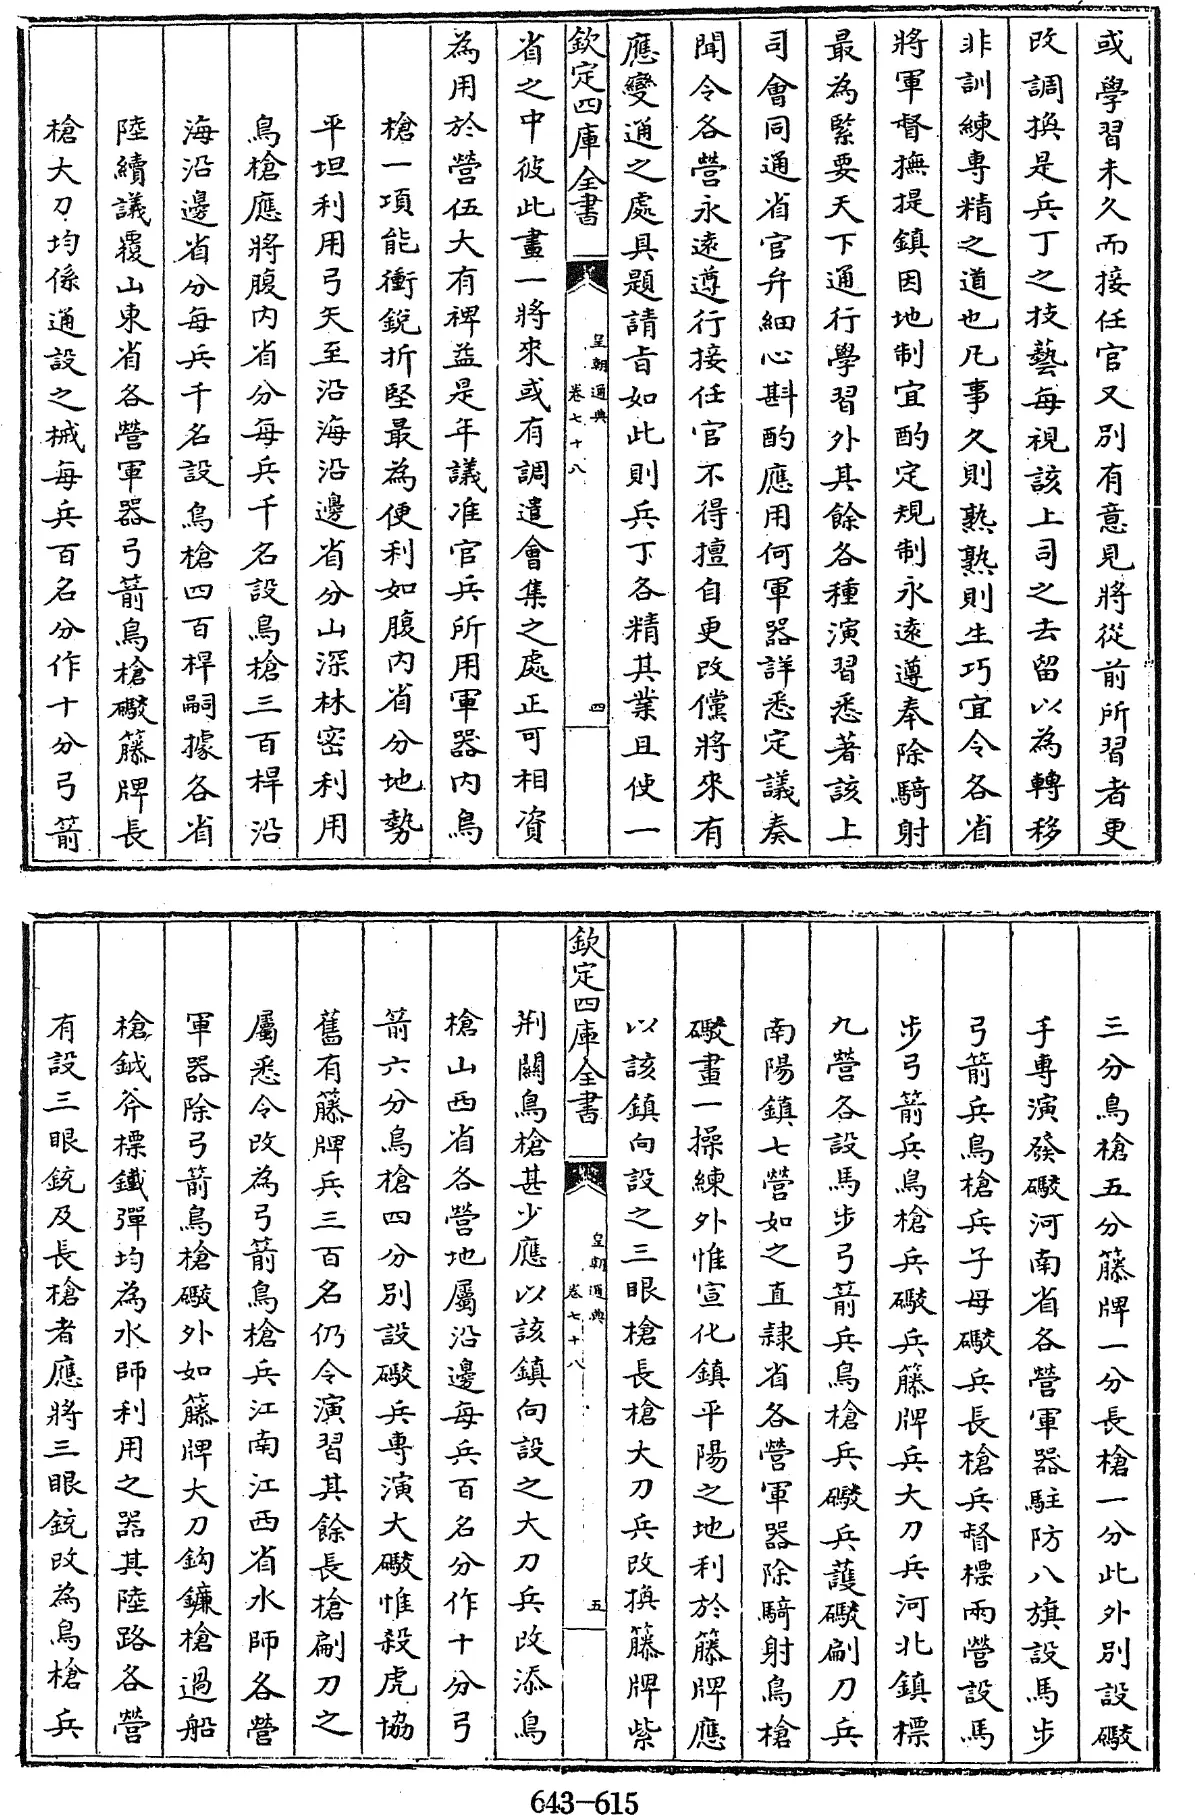 或學習未久而接任官又別有意見將從前所習者更
改調換是兵丁之技藝每視該上司之去留以為轉移
非訓練專精之道也凡事久則熟熟則生巧宜令各省
將軍督撫提鎮因地制宜酌定規制永遠遵奉除騎射
最為緊要天下通行學習外其餘各種演習悉著該上
司會同通省官弁細心斟酌應用何軍器詳悉定議奏
聞令各營永遠遵行接任官不得擅自更改儻將來有
應變通之處具題請旨如此則兵丁各精其業且使一
欽定四庫全書
皇朝通典
卷七十八
四
省之中彼此畫一將來或有調遣會集之處正可相資
為用於營伍大有裨益是年議准官兵所用軍器內鳥
槍一項能衝銳折堅最為便利如腹內省分地勢
平坦利用弓矢至沿海沿邊省分山深林密利用
鳥槍應將腹內省分每兵千名設鳥槍三百桿沿
海沿邊省分每兵千名設鳥槍四百桿嗣據各省
陸續議覆山東省各營軍器弓箭鳥槍礮籐牌長
槍大刀均係通設之械每兵百名分作十分弓箭
三分鳥槍五分籐牌一分長槍一分此外別設礮
手專演發礮河南省各營軍器駐防八旗設馬步
弓箭兵鳥槍兵子母礮兵長槍兵督標兩營設馬
步弓箭兵鳥槍兵礮兵籐牌兵大刀兵河北鎮標
九營各設馬步弓箭兵鳥槍兵礮兵護礮劚刀兵
南陽鎮七營如之直隸省各營軍器除騎射鳥槍
礮畫一操練外惟宣化鎮平陽之地利於籐牌應
以該鎮向設之三眼槍長槍大刀兵改換籐牌紫
欽定四庫全書
皇朝通典
卷七十八
五
荆關鳥槍甚少應以該鎮向設之大刀兵改添鳥
槍山西省各營地屬沿邊每兵百名分作十分弓
箭六分鳥槍四分別設礮兵專演大礮惟殺虎協
舊有籐牌兵三百名仍令演習其餘長槍劚刀之
屬悉令改為弓箭鳥槍兵江南江西省水師各營
軍器除弓箭鳥槍礮外如籐牌大刀鈎鐮槍過船
槍鉞斧標鐵彈均為水師利用之器其陸路各營
有設三眼銃及長槍者應將三眼銃改為鳥槍兵
643-615